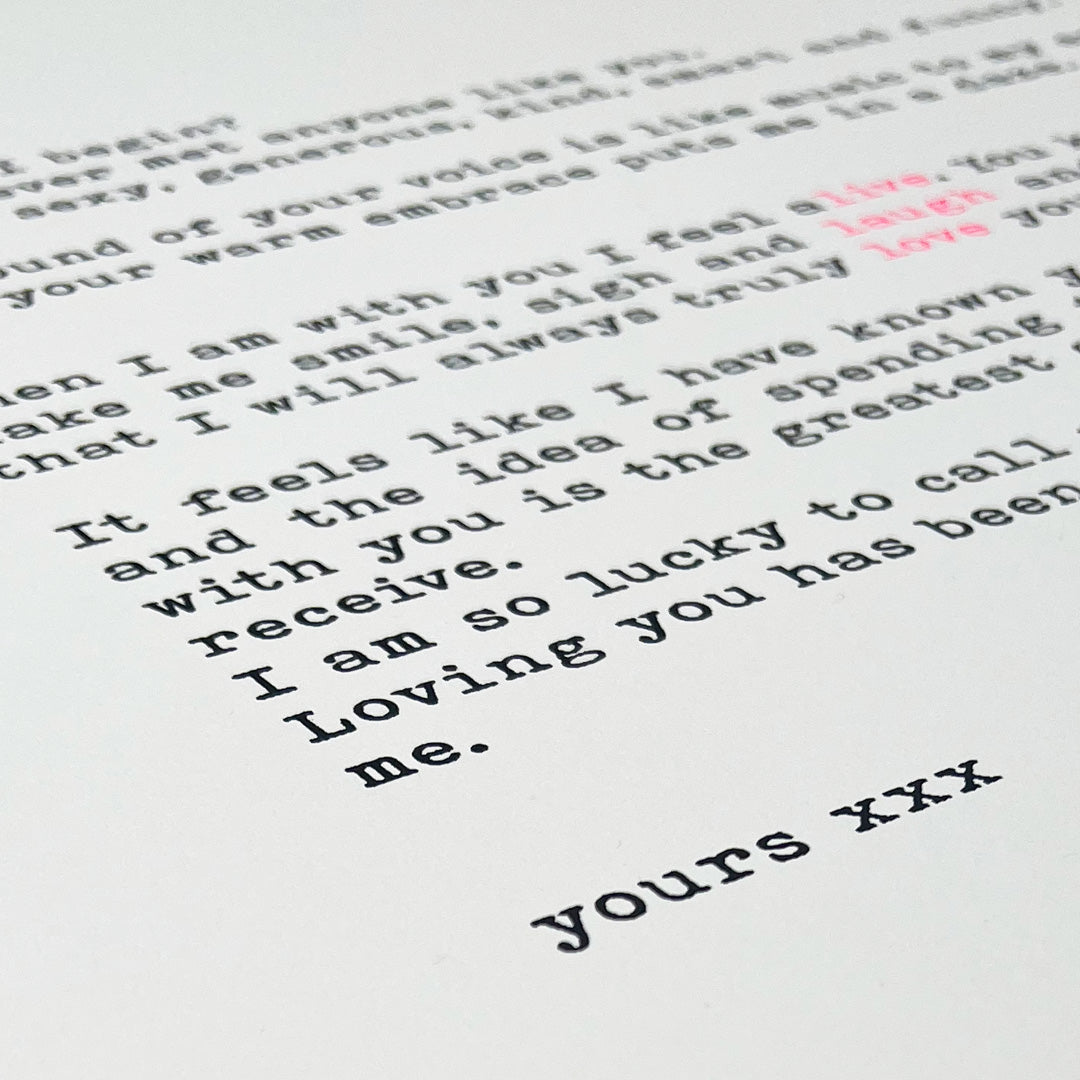 I begin?
ever met anyone like you.
sexy, generous, kind, smart and funny.
ound of your voice is like music to my
your warm embrace puts me in a daze.
hen I am with you I feel alive. You
ake me smile, sigh and laugh and
that I will always truly love you
It feels like I have known
and the idea of spending
with you is the greatest
receive.
I am so lucky to call
Loving you has been
me.
yours xxx